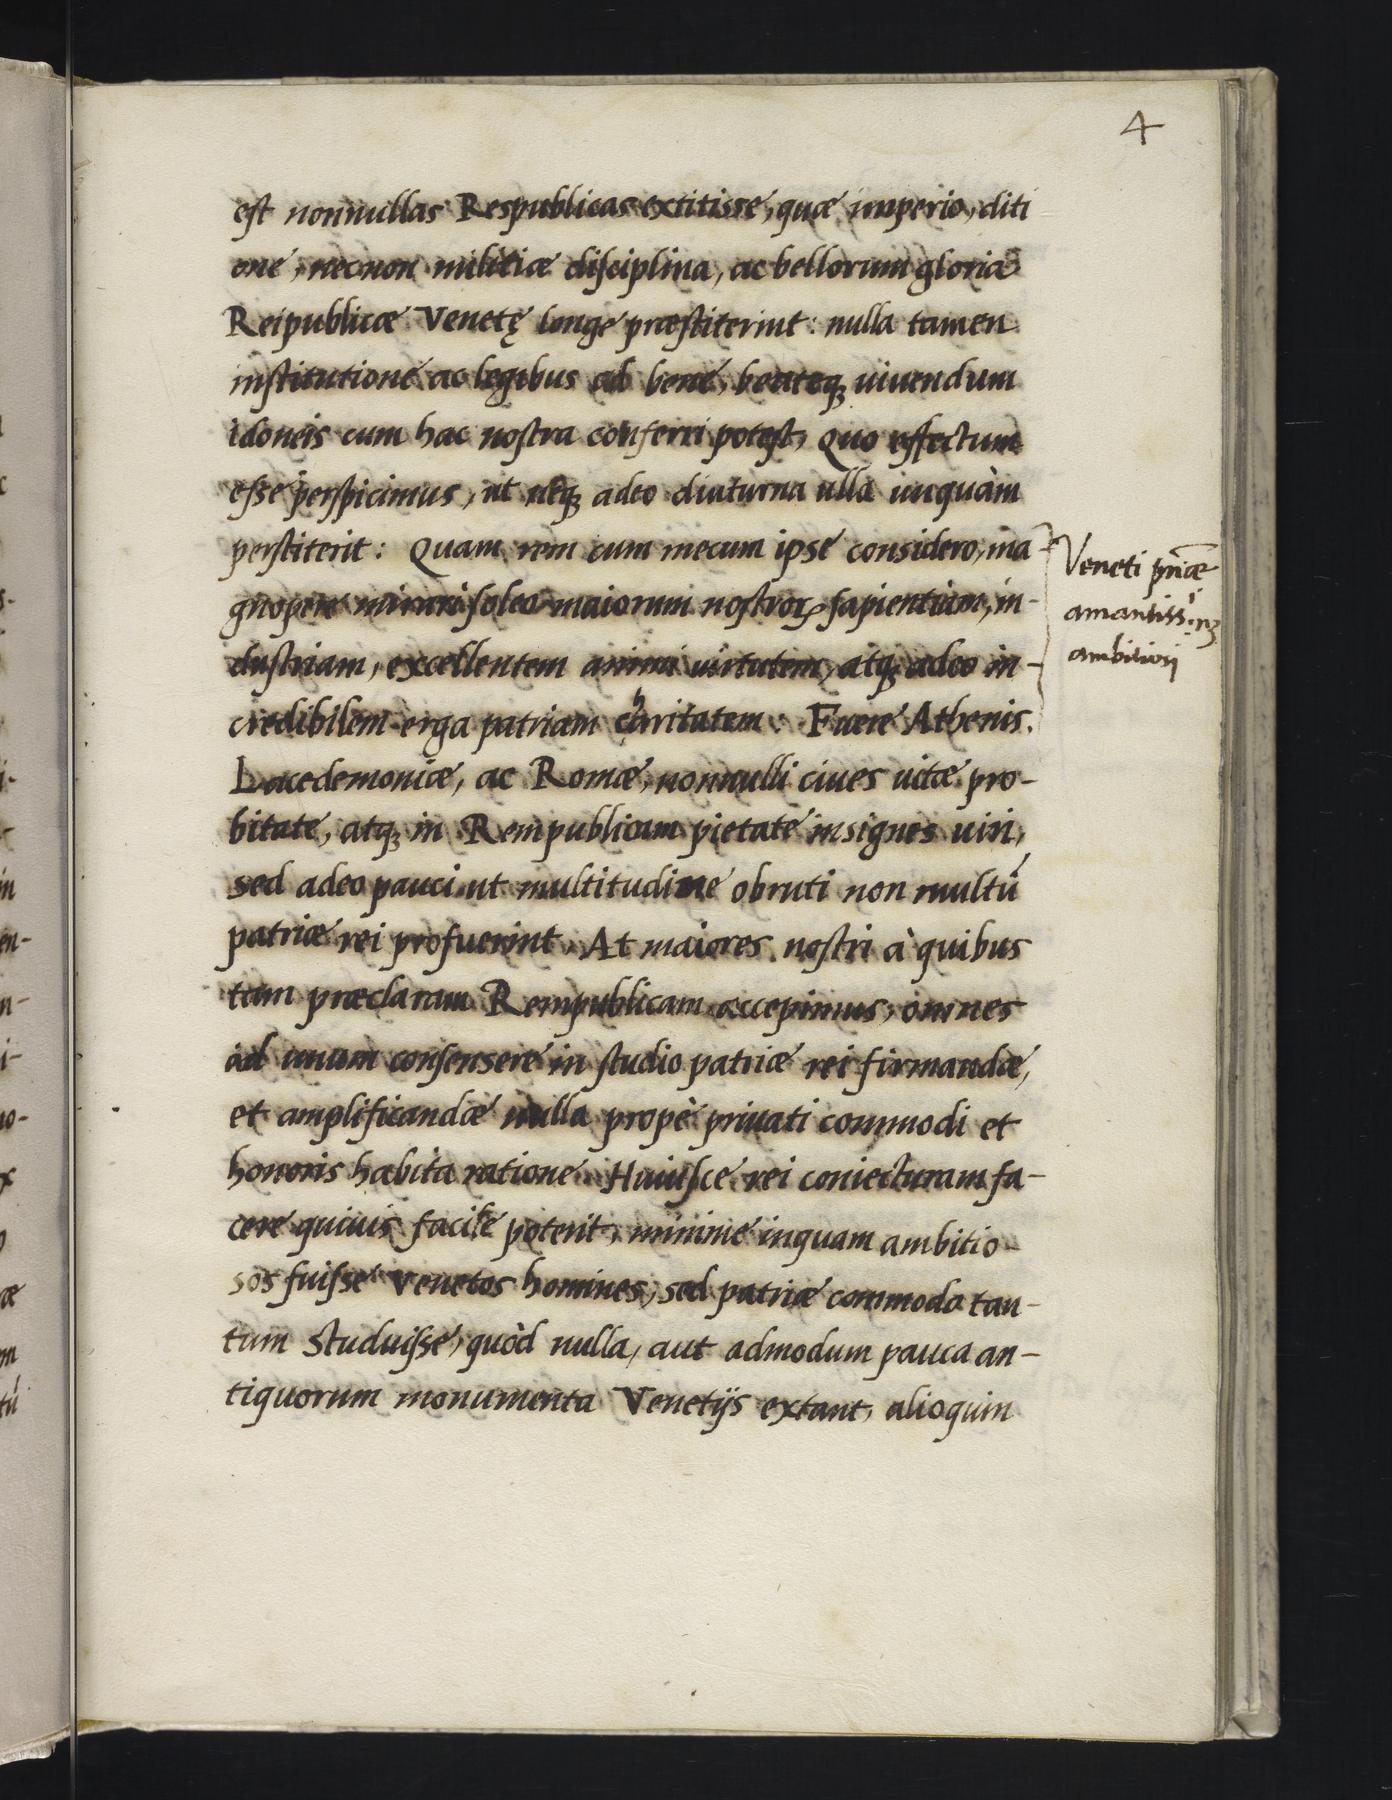 4
est nonnullas Respublicas extitisse, quæ imperio, diti
one, necnon militiæ disciplina, ac bellorum gloria
Reipublicæ Venetę longe præstiterint: nulla tamen
institutione ac legibus ad bene, beateq; uiuendum
idoneis cum hac nostra conferri potest, Quo effectum
esse perspicimus, ut neq; adeo diuturna ulla unquàm
perstiterit: Quam rem cum mecum ipse considero, ma-
gnopere mirari soleo maiorum nostrorꝝ sapientiam, in-
dustriam, excellentem animi uirtutem, atq; adeo in-
credibilem erga patriam charitatem. Fuere Athenis.
Lacedemoniæ, ac Romæ, nonnulli ciues uitæ pro-
bitate, atq; in Rempublicam pietate insignes uiri,
sed adeo pauci ut multitudine obruti non multú
patriæ rei profuerint. At maiores nostri à quibus
tam præclaram Rempublicam accepimus, omnes
ad unum consensere in studio patriæ rei firmandæ,
et amplificandæ nulla propè priuati commodi et
honoris habita ratione. Huiusce rei coniecturam fa-
cere quiuis facile poterit, minime inquam ambitio-
sos fuisse Venetos homines, sed patriæ commodo tan-
tum studuisse, quòd nulla, aut admodum pauca an-
tiquorum monumenta Venetijs extant, alioquin
Veneti pr̄iæ
amantiss.i nō
ambitiosi